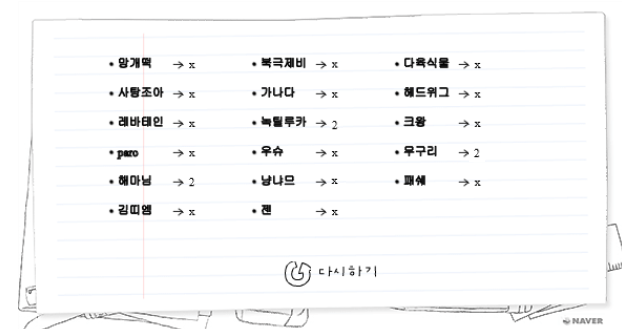 • 앙개떡 → x • 북극제비 → x • 다육식물 → x
• 사탕조아 → x • 가나다 → x • 헤드위그 → x
• 레바테인 → x • 녹틸루카 → 2 • 크왕 → x
• paro → x • 우슈 → x • 무구리 → 2
• 해마님 → 2 • 냥냐므 → x • 패쉐 → x
• 김띠엠 → x • 젠 → x
다시하기
NAVER